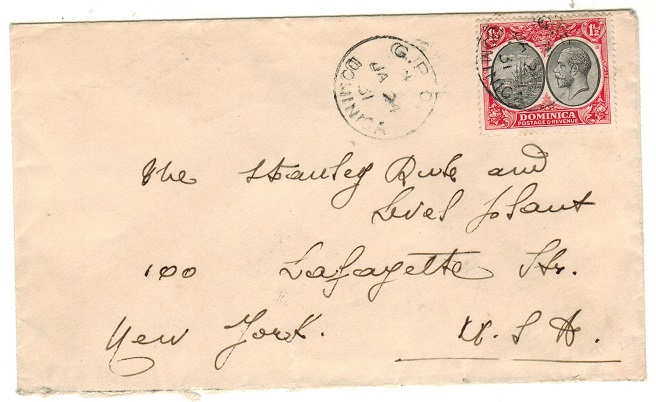 G.P.O.
JA 24
31
DOMINICA
1½ 1½
DOMINICA
POSTAGE & REVENUE
The Stanley Rule and
Level Plant
100 Lafayette Str.
New York. U.S.A.